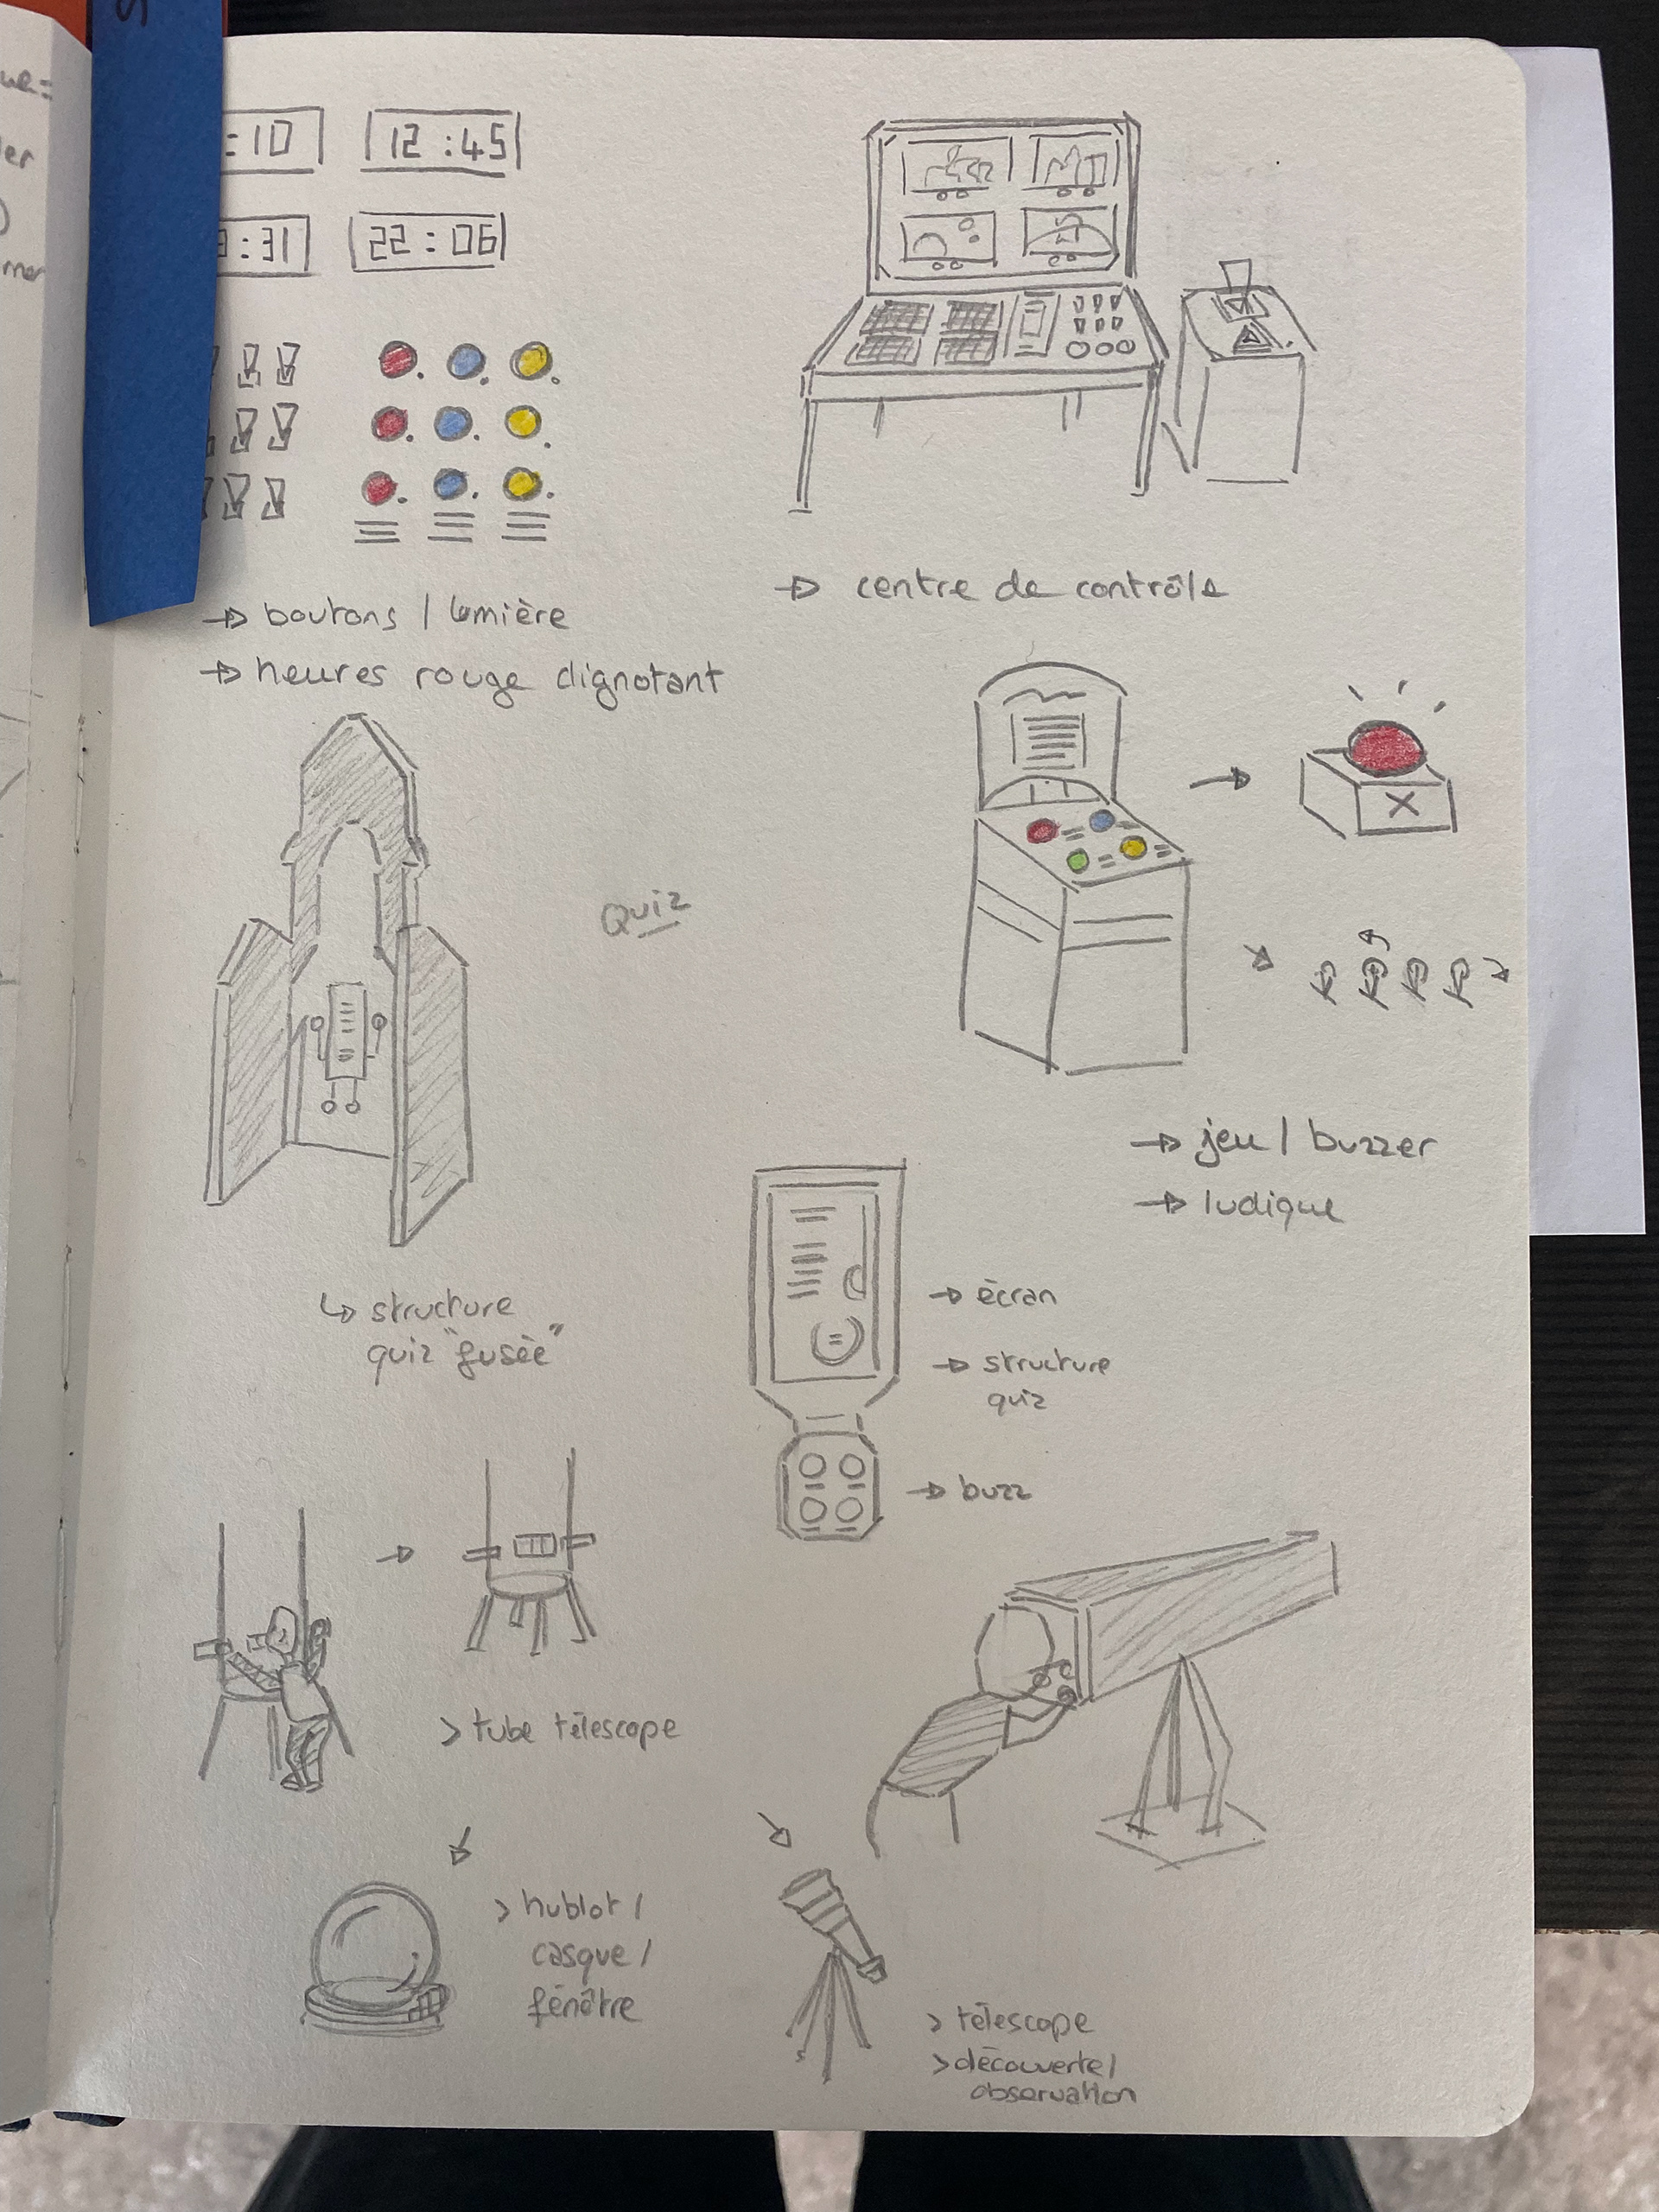 :10
12:45
:31
22:06
→ boutons / lumière
→ heures rouge clignotant
→ centre de contrôle
Quiz
X
→ jeu / buzzer
→ ludique
↳ structure
quiz "fusée"
→ écran
→ structure
quiz
→ buzz
> tube télescope
> hublot /
casque /
fénêtre
> télescope
> découverte /
observation